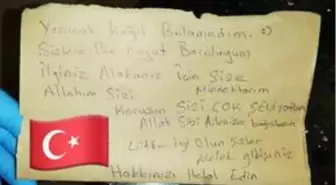 Yazacak kağıt Bulamadım. :)
Sizlere Bir hayat Borçluyum
İlginiz Alakanız İçin Size
Minnettarım
Allahım Sizi
Korusun Sizi ÇOK SEVİYORUM
Allah Sizi Ailenize bağışlasın
Lütfen İyi Olun Sizler
Melek gibisiniz
Hakkınızı Helal Edin